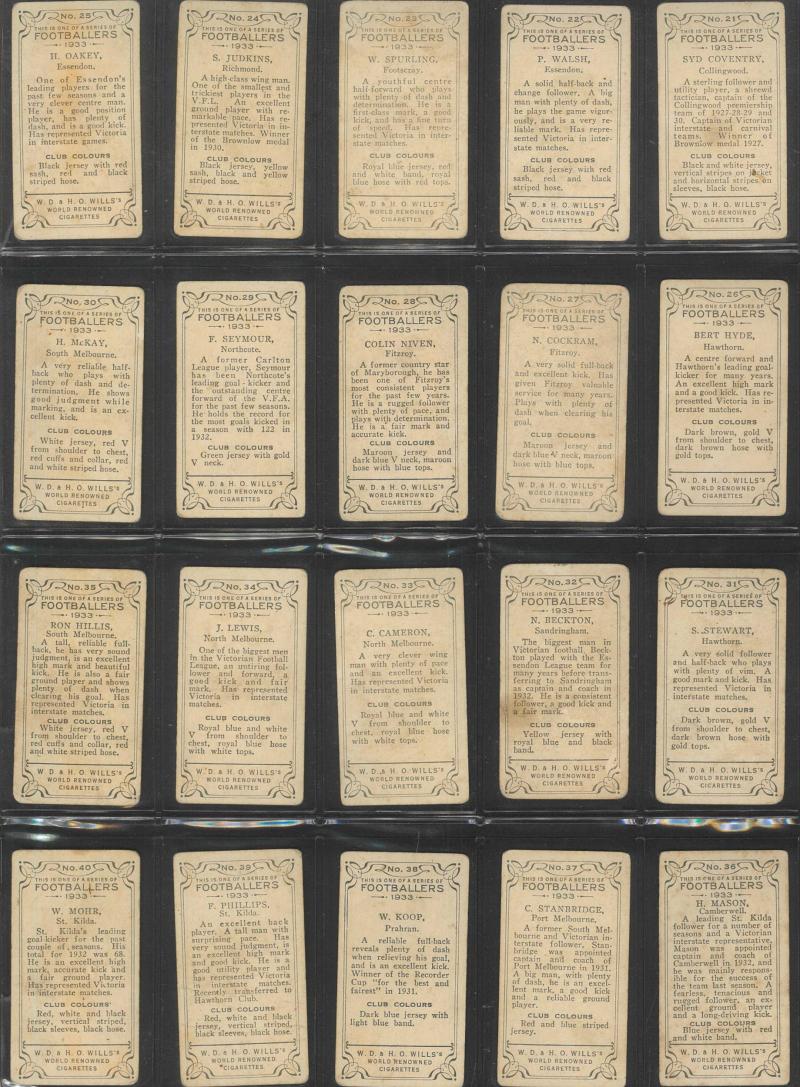 No. 25
THIS IS ONE OF A SERIES OF
FOOTBALLERS
1933
H. OAKEY,
Essendon.
One of Essendon's
leading players for the
past few seasons and a
very clever centre man.
He is a good position
player, has plenty of
dash, and is a good kick.
Has represented Victoria
in interstate games.
CLUB COLOURS
Black jersey with red
sash, red and black
striped hose.
W. D. & H. O. WILLS'S
WORLD RENOWNED
CIGARETTES
No. 24
THIS IS ONE OF A SERIES OF
FOOTBALLERS
1933
S. JUDKINS,
Richmond.
A high-class wing man.
One of the smallest and
trickiest players in the
V.F.L. An excellent
ground player with re-
markable pace. Has re-
presented Victoria in in-
terstate matches. Winner
of the Brownlow medal
in 1930.
CLUB COLOURS
Black jersey, yellow
sash, black and yellow
striped hose.
W. D. & H. O. WILLS'S
WORLD RENOWNED
CIGARETTES
No. 23
THIS IS ONE OF A SERIES OF
FOOTBALLERS
1933
W. SPURLING,
Footscray.
A youthful centre
half-forward who plays
with plenty of dash and
determination. He is a
first-class mark, a good
kick, and has a fine turn
of speed. Has repre-
sented Victoria in inter-
state matches.
CLUB COLOURS
Royal blue jersey, red
and white band, royal
blue hose with red tops.
W. D. & H. O. WILLS'S
WORLD RENOWNED
CIGARETTES
No. 22
THIS IS ONE OF A SERIES OF
FOOTBALLERS
1933
P. WALSH,
Essendon.
A solid half-back and
change follower. A big
man with plenty of dash,
he plays the game vigor-
ously, and is a very re-
liable mark. Has repre-
sented Victoria in inter-
state matches.
CLUB COLOURS
Black jersey with red
sash, red and black
striped hose.
W. D. & H. O. WILLS'S
WORLD RENOWNED
CIGARETTES
No. 21
THIS IS ONE OF A SERIES OF
FOOTBALLERS
1933
SYD COVENTRY,
Collingwood.
A sterling follower and
utility player, a shrewd
tactician, captain of the
Collingwood premiership
team of 1927-28-29 and
30. Captain of Victorian
interstate and carnival
teams. Winner of
Brownlow medal 1927.
CLUB COLOURS
Black and white jersey,
vertical stripes on jacket
and horizontal stripes on
sleeves, black hose.
W. D. & H. O. WILLS'S
WORLD RENOWNED
CIGARETTES
No. 30
THIS IS ONE OF A SERIES OF
FOOTBALLERS
1933
H. McKAY,
South Melbourne.
A very reliable half-
back who plays with
plenty of dash and de-
termination. He shows
good judgment while
marking, and is an ex-
cellent kick.
CLUB COLOURS
White jersey, red V
from shoulder to chest,
red cuffs and collar, red
and white striped hose.
W. D. & H. O. WILLS'S
WORLD RENOWNED
CIGARETTES
No. 29
THIS IS ONE OF A SERIES OF
FOOTBALLERS
1933
F. SEYMOUR,
Northcote.
A former Carlton
League player, Seymour
has been Northcote's
leading goal-kicker and
the outstanding centre
forward of the V.F.A.
for the past few seasons.
He holds the record for
the most goals kicked in
a season with 122 in
1932.
CLUB COLOURS
Green jersey with gold
V neck.
W. D. & H. O. WILLS'S
WORLD RENOWNED
CIGARETTES
No. 28
THIS IS ONE OF A SERIES OF
FOOTBALLERS
1933
COLIN NIVEN,
Fitzroy.
A former country star
of Maryborough, he has
been one of Fitzroy's
most consistent players
for the past few years.
He is a rugged follower
with plenty of pace, and
plays with determination.
He is a fair mark and
accurate kick.
CLUB COLOURS
Maroon jersey and
dark blue V neck, maroon
hose with blue tops.
W. D. & H. O. WILLS'S
WORLD RENOWNED
CIGARETTES
No. 27
THIS IS ONE OF A SERIES OF
FOOTBALLERS
1933
N. COCKRAM,
Fitzroy.
A very solid full-back
and excellent kick. Has
given Fitzroy valuable
service for many years.
Plays with plenty of
dash when clearing his
goal.
CLUB COLOURS
Maroon jersey and
dark blue V neck, maroon
hose with blue tops.
W. D. & H. O. WILLS'S
WORLD RENOWNED
CIGARETTES
No. 26
THIS IS ONE OF A SERIES OF
FOOTBALLERS
1933
BERT HYDE,
Hawthorn.
A centre forward and
Hawthorn's leading goal-
kicker for many years.
An excellent high mark
and a good kick. Has re-
presented Victoria in in-
terstate matches.
CLUB COLOURS
Dark brown, gold V
from shoulder to chest,
dark brown hose with
gold tops.
W. D. & H. O. WILLS'S
WORLD RENOWNED
CIGARETTES
No. 35
THIS IS ONE OF A SERIES OF
FOOTBALLERS
1933
RON HILLIS,
South Melbourne.
A tall, reliable full-
back, he has very sound
judgment, is an excellent
high mark and beautiful
kick. He is also a fair
ground player and shows
plenty of dash when
clearing his goal. Has
represented Victoria in
interstate matches.
CLUB COLOURS
White jersey, red V
from shoulder to chest,
red cuffs and collar, red
and white striped hose.
W. D. & H. O. WILLS'S
WORLD RENOWNED
CIGARETTES
No. 34
THIS IS ONE OF A SERIES OF
FOOTBALLERS
1933
J. LEWIS,
North Melbourne.
One of the biggest men
in the Victorian Football
League, an untiring fol-
lower and forward, a
good kick and fair
mark. Has represented
Victoria in interstate
matches.
CLUB COLOURS
Royal blue and white
V from shoulder to
chest, royal blue hose
with white tops.
W. D. & H. O. WILLS'S
WORLD RENOWNED
CIGARETTES
No. 33
THIS IS ONE OF A SERIES OF
FOOTBALLERS
1933
C. CAMERON,
North Melbourne.
A very clever wing
man with plenty of pace
and an excellent kick.
Has represented Victoria
in interstate matches.
CLUB COLOURS
Royal blue and white
V from shoulder to
chest, royal blue hose
with white tops.
W. D. & H. O. WILLS'S
WORLD RENOWNED
CIGARETTES
No. 32
THIS IS ONE OF A SERIES OF
FOOTBALLERS
1933
N. BECKTON,
Sandringham.
The biggest man in
Victorian football, Beck-
ton played with the Es-
sendon League team for
many years before trans-
ferring to Sandringham
as captain and coach in
1932. He is a consistent
follower, a good kick and
a fair mark.
CLUB COLOURS
Yellow jersey with
royal blue and black
band.
W. D. & H. O. WILLS'S
WORLD RENOWNED
CIGARETTES
No. 31
THIS IS ONE OF A SERIES OF
FOOTBALLERS
1933
S. STEWART,
Hawthorn.
A very solid follower
and half-back who plays
with plenty of vim. A
good mark and kick. Has
represented Victoria in
interstate matches.
CLUB COLOURS
Dark brown, gold V
from shoulder to chest,
dark brown hose with
gold tops.
W. D. & H. O. WILLS'S
WORLD RENOWNED
CIGARETTES
No. 40
THIS IS ONE OF A SERIES OF
FOOTBALLERS
1933
W. MOHR,
St. Kilda.
St. Kilda's leading
goal-kicker for the past
couple of seasons. His
total for 1932 was 68.
He is an excellent high
mark, accurate kick and
a fair ground player.
Has represented Victoria
in interstate matches.
CLUB COLOURS
Red, white and black
jersey, vertical striped,
black sleeves, black hose.
W. D. & H. O. WILLS'S
WORLD RENOWNED
CIGARETTES
No. 39
THIS IS ONE OF A SERIES OF
FOOTBALLERS
1933
F. PHILLIPS,
St. Kilda.
An excellent back
player. A tall man with
surprising pace. Has
very sound judgment, is
an excellent high mark
and good kick. He is a
good utility player and
has represented Victoria
in interstate matches.
Recently transferred to
Hawthorn Club.
CLUB COLOURS
Red, white and black
jersey, vertical striped,
black sleeves, black hose.
W. D. & H. O. WILLS'S
WORLD RENOWNED
CIGARETTES
No. 38
THIS IS ONE OF A SERIES OF
FOOTBALLERS
1933
W. KOOP,
Prahran.
A reliable full-back
reveals plenty of dash
when relieving his goal,
and is an excellent kick.
Winner of the Recorder
Cup "for the best and
fairest" in 1931.
CLUB COLOURS
Dark blue jersey with
light blue band.
W. D. & H. O. WILLS'S
WORLD RENOWNED
CIGARETTES
No. 37
THIS IS ONE OF A SERIES OF
FOOTBALLERS
1933
C. STANBRIDGE,
Port Melbourne.
A former South Mel-
bourne and Victorian in-
terstate follower, Stan-
bridge was appointed
captain and coach of
Port Melbourne in 1931.
A big man, with plenty
of dash, he is an excel-
lent mark, a good kick
and a reliable ground
player.
CLUB COLOURS
Red and blue striped
jersey.
W. D. & H. O. WILLS'S
WORLD RENOWNED
CIGARETTES
No. 36
THIS IS ONE OF A SERIES OF
FOOTBALLERS
1933
H. MASON,
Camberwell.
A leading St. Kilda
follower for a number of
seasons and a Victorian
interstate representative,
Mason was appointed
captain and coach of
Camberwell in 1932, and
he was mainly respons-
ible for the success of
the team last season. A
fearless, tenacious and
rugged follower, an ex-
cellent ground player
and a long-driving kick.
CLUB COLOURS
Blue jersey with red
and white band.
W. D. & H. O. WILLS'S
WORLD RENOWNED
CIGARETTES